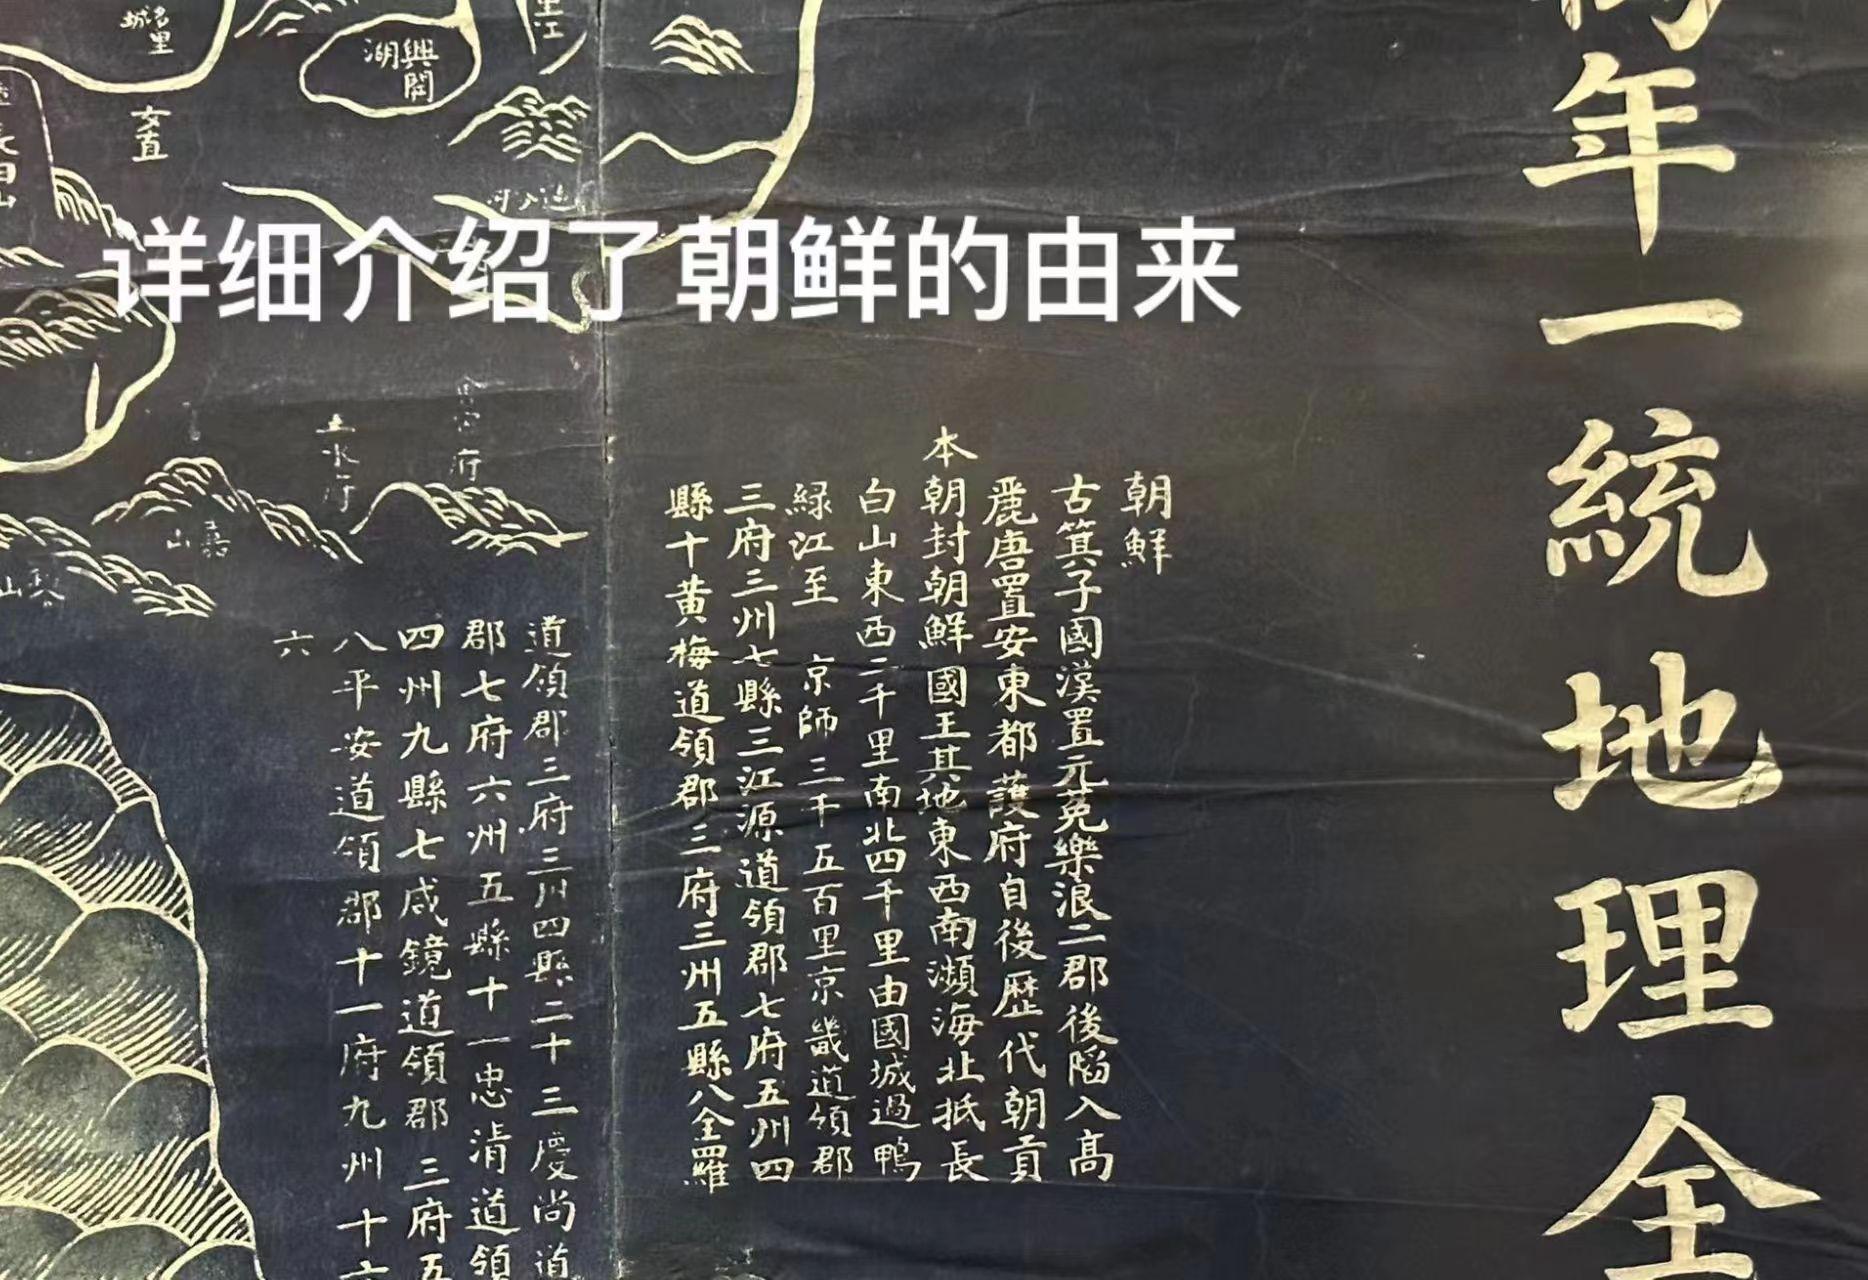 年一統地理全
详细介绍了朝鲜的由来
朝鮮
古箕子國漢置元菟樂浪二郡後陷入高
麗唐置安東都護府自後歷代朝貢
本朝封朝鮮國王其地東西南瀕海北抵長
白山東西二千里南北四千里由國城過鴨
綠江至 京師三千五百里京畿道領郡
三府三州七縣三江源道領郡七府五州四
縣十黃梅道領郡三府三州五縣八全羅
道領郡三府三州四縣二十三慶尚道
郡七府六州五縣十一忠清道領
四州九縣七咸鏡道領郡三府五
八平安道領郡十一府九州十六
六
興開湖
女直